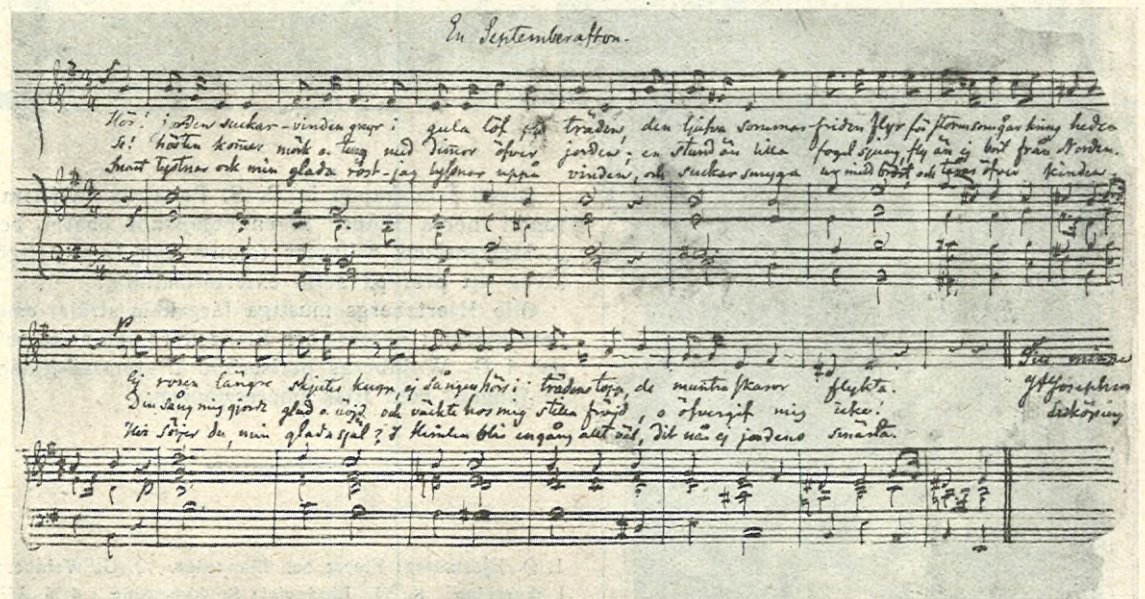 En Septemberafton.
Hör! suckar vinden i gula löf träden, den ljufva sommarfriden flyr för kring heden
Se! hösten kommer mörk o. tung med dimmor öfver jorden; en stund än lilla fogel sjung, fly än ej bort från Norden.
Snart tystnar ock min glada röst - jag lyssnar uppå vinden, och suckar smyga ur mitt bröst och öfver kinden.
Ej rosen längre skjuter ej sången hörs i trädens topp, de muntra skaror flykta.
Din sång mig gjorde glad o. nöjd och väckte hos mig stilla fröjd, o öfvergif mig icke!
sörjer du, min glada själ? I Himlen blir engång allt väl, dit når ej jordens smärta.
Till minne
Josephson